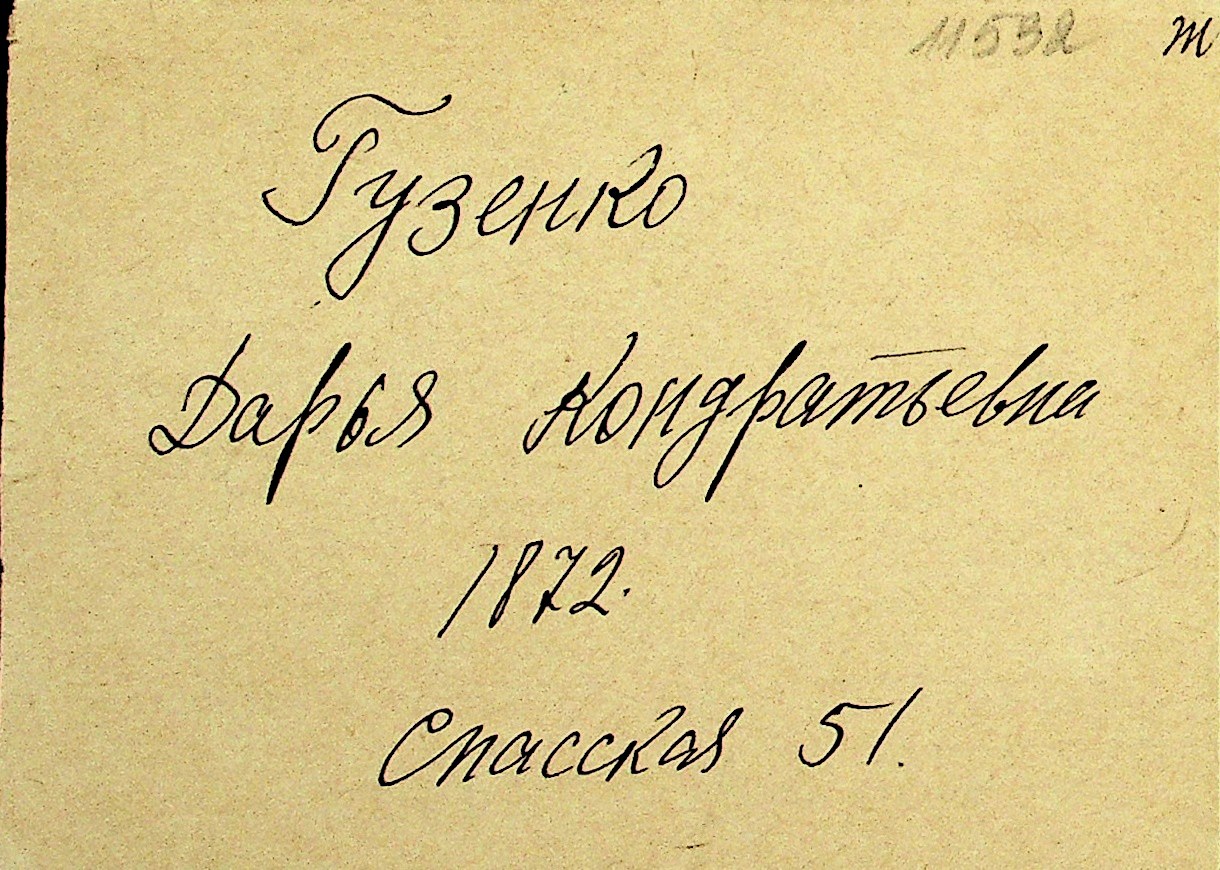 11532 т
Гузенко
Дарья Кондратьевна
1872.
Спасская 51.